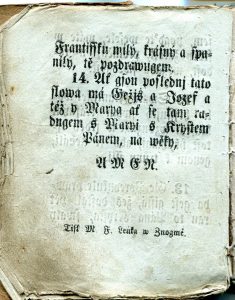 Frantissku milý, krásný a spa-
nilý, tě pozdrawugem.
14. Ať gsou poslednj tato
slowa má Gežjs a Jozef a
též y Marya ať se tam ra-
dugem s Maryj s Krystem
Pánem, na wěky,
AMEN.
Tisk M. F. Lenka w Znogmě.